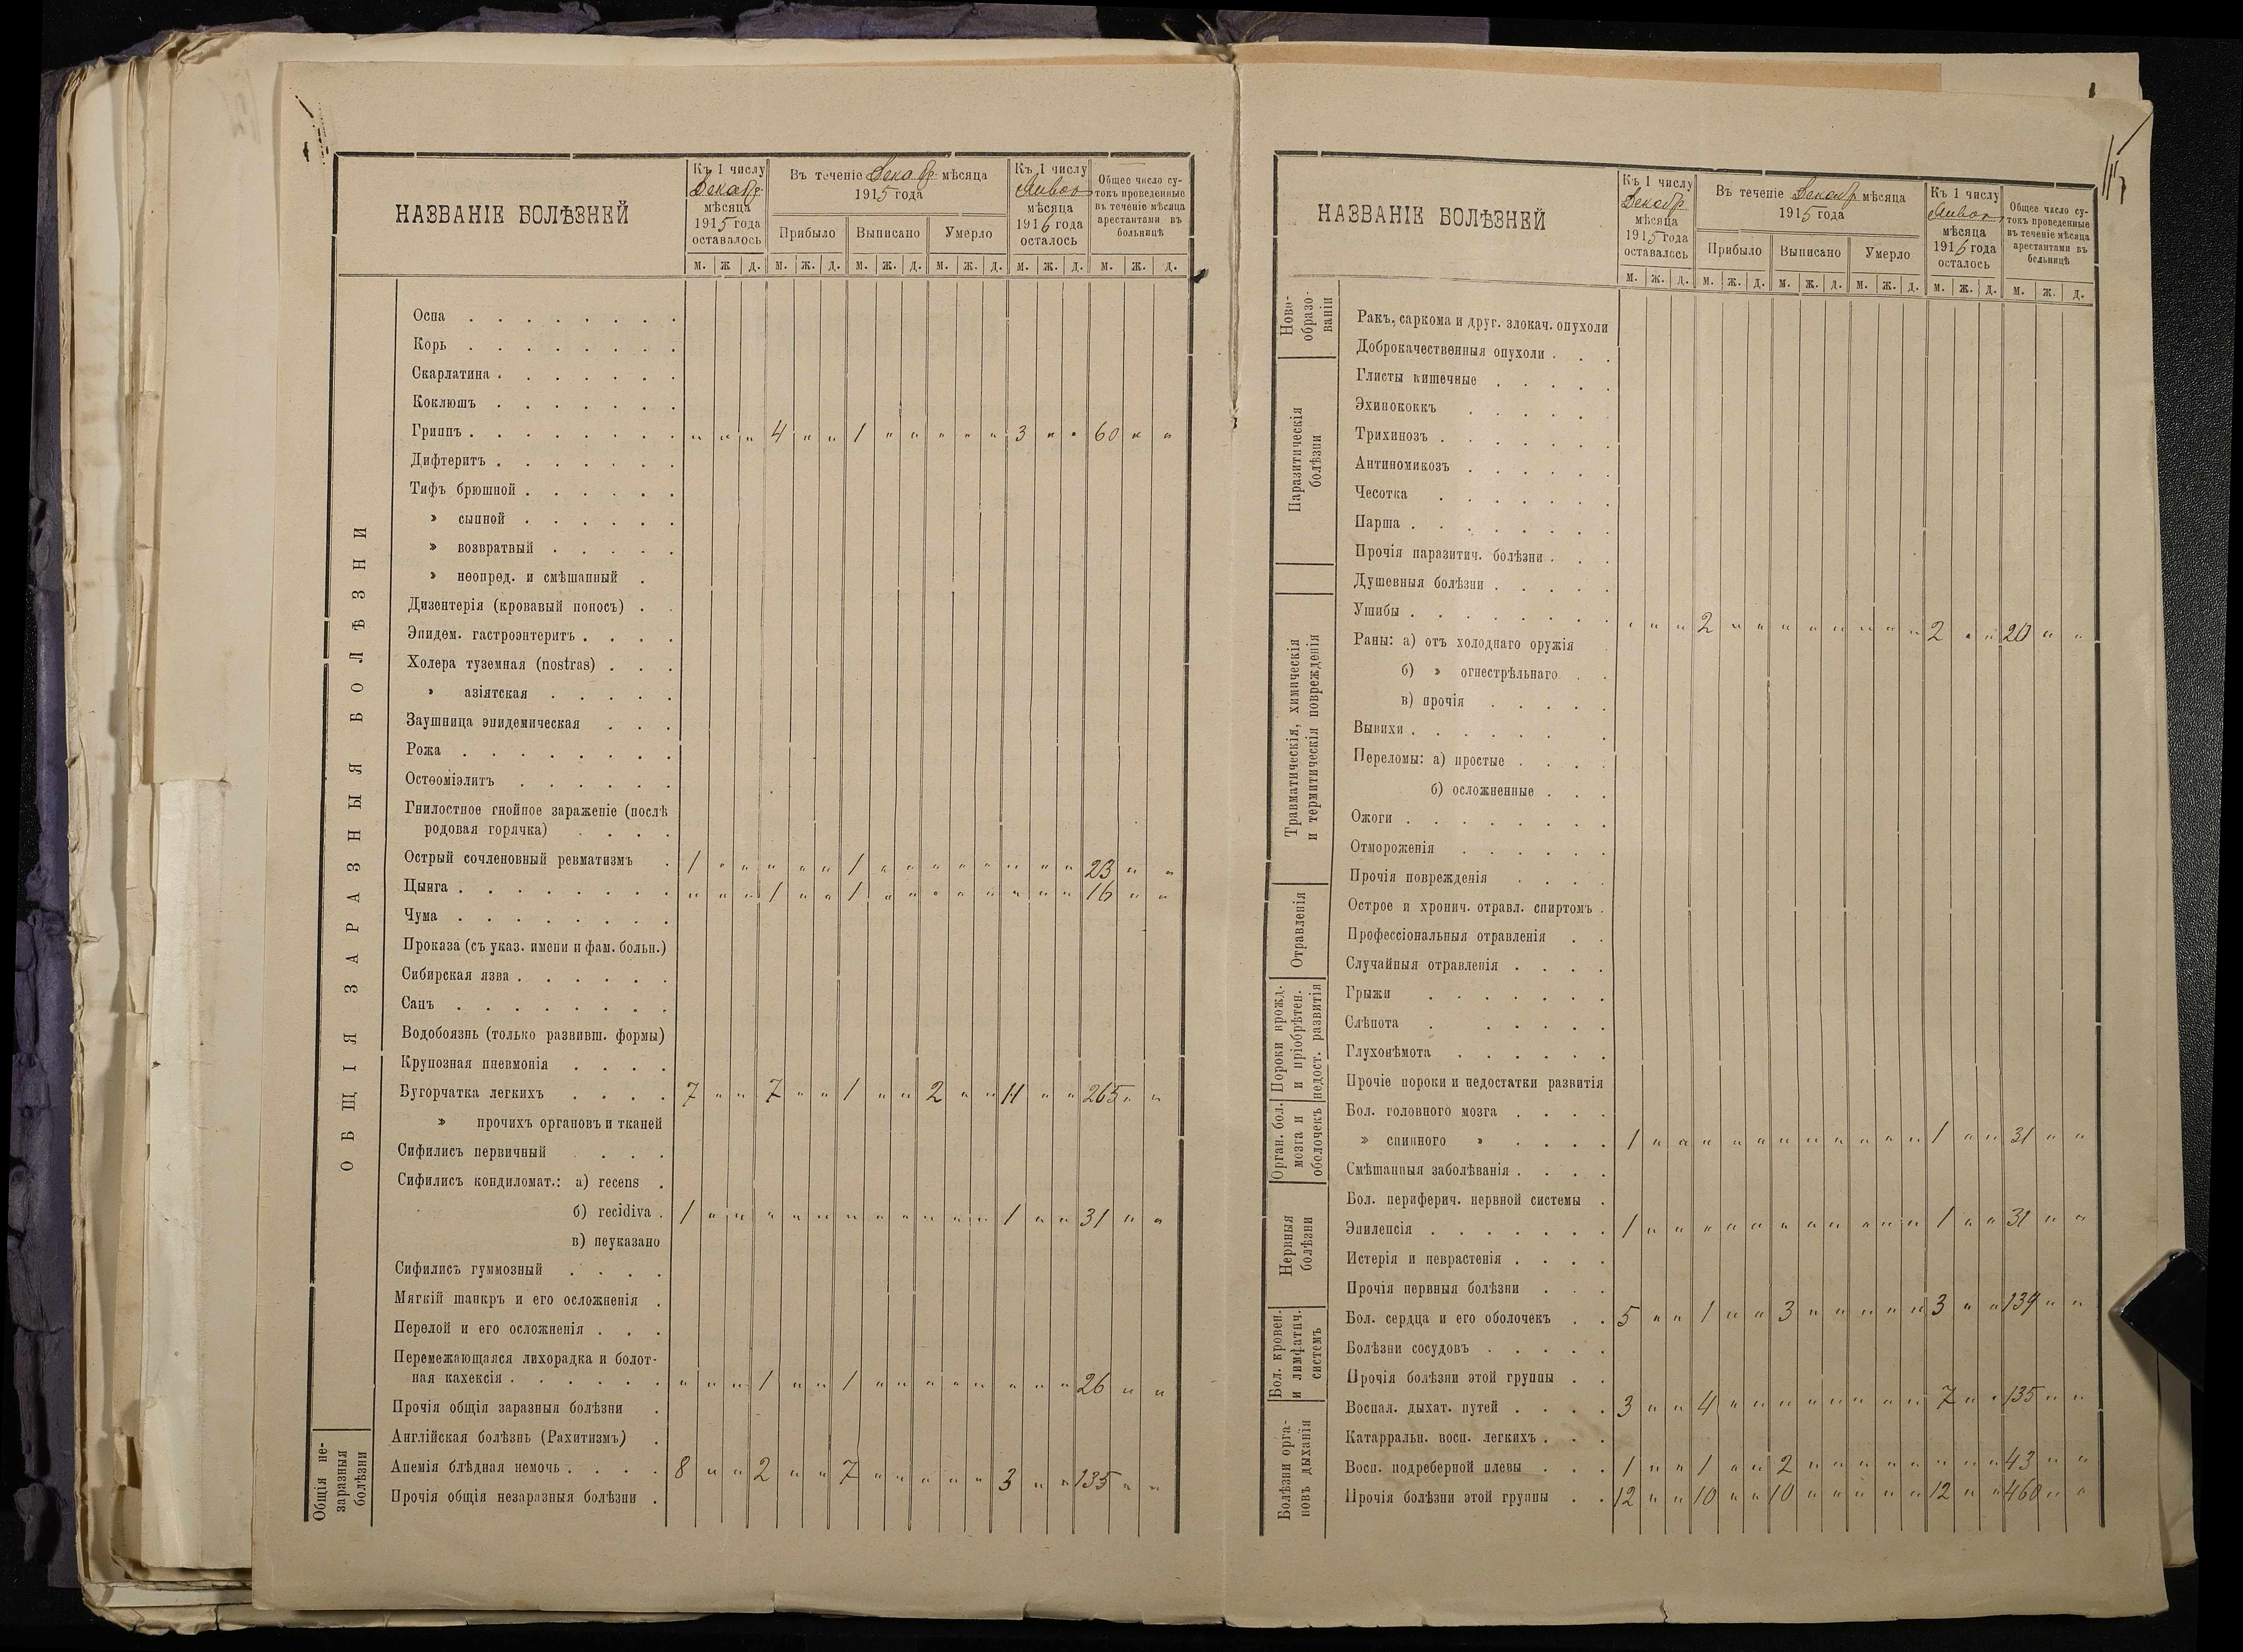 НАЗВАНІЕ БОЛѢЗНЕЙ
Къ 1 числу
Декабр
мѣсяца
1915 года
оставалось
Въ теченіе Декабр мѣсяца
1915 года
Прибыло Выписано Умерло
Къ 1 числу
мѣсяца
1916 года
осталось
Общее число су-
токъ проведенные
въ теченіе мѣсяца
арестантами въ
больницѣ
м. ж д. м. ж. д. м. ж. д. м. ж. д. м. ж. д. м. ж. д.
ОБЩІЯ ЗАРАЗНЫЯ БОЛѢЗНИ
Оспа
Корь
Скарлатина
Коклюшъ
Гриппъ " " " 4 " " 1 " " " " " 3 " " 60 " "
Дифтеритъ
Тифъ брюшной
» сыпной
» возвратный
» неопред. и смѣшанный
Дизентерія (кровавый поносъ)
Эпидем. гастроэнтеритъ
Холера туземная (nostras)
» азіятская
Заушница эпидемическая
Рожа
Остеоміэлитъ
Гнилостное гнойное зараженіе (послѣ
родовая горячка)
Острый сочленовный ревматизмъ 1 " " " " " 1 " " " " " " " " 23 " "
Цынга " " " 1 " " 1 " " " " " " " " 16 " "
Чума
Проказа (съ указ. имени и фам. больн.)
Сибирская язва
Сапъ
Водобоязнь (только развивш. формы)
Крупозная пневмонія
Бугорчатка легкихъ 7 " " 7 " " 1 " " 2 " " 11 " " 265 " "
» прочихъ органовъ и тканей
Сифилисъ первичный
Сифилисъ кондиломат.: а) recens
б) recidiva 1 " " " " " " " " " " " 1 " " 31 " "
в) неуказано
Сифилисъ гуммозный
Мягкій шанкръ и его осложненія
Перелой и его осложненія
Перемежающаяся лихорадка и болот-
ная кахексія " " " 1 " " 1 " " " " " " " " 26 " "
Прочія общія заразныя болѣзни
Общія не-
заразныя
болѣзни
Англійская болѣзнь (Рахитизмъ)
Анемія блѣдная немочь 8 " " 2 " " 7 " " " " " 3 " " 135 " "
Прочія общія незаразныя болѣзни
НАЗВАНІЕ БОЛѢЗНЕЙ
Къ 1 числу
Декабр
мѣсяца
1915 года
оставалось
Въ теченіе Декабр мѣсяца
1915 года
Прибыло Выписано Умерло
Къ 1 числу
мѣсяца
1916 года
осталось
Общее число су-
токъ проведенные
въ теченіе мѣсяца
арестантами въ
больницѣ
м. ж. д. м. ж. д. м. ж. д. м. ж. д. м. ж. д. м. ж. д.
Ново-
образо-
ванія
Ракъ, саркома и друг. злокач. опухоли
Доброкачественныя опухоли
Паразитическія
болѣзни
Глисты кишечные
Эхинококкъ
Трихинозъ
Антиномикозъ
Чесотка
Парша
Прочія паразитич. болѣзни
Душевныя болѣзни
Травматическія, химическія
и термитическія поврежденія
Ушибы " " " 2 " " " " " " " " 2 " " 20 " "
Раны: а) отъ холоднаго оружія
б) » огнестрѣльнаго
в) прочія
Вывихи
Переломы: а) простые
б) осложненные
Ожоги
Отмороженія
Прочія поврежденія
Отравленія
Острое и хронич. отравл. спиртомъ
Профессіональныя отравленія
Случайныя отравленія
Пороки врожд.
и пріобрѣтен.
недост. развитія
Грыжи
Слѣпота
Глухонѣмота
Прочіе пороки и недостатки развитія
Орган. бол.
мозга и
оболочекъ
Бол. головного мозга
» спинного » 1 " " " " " " " " " " " 1 " " 31 " "
Смѣшанныя заболѣванія
Нервныя
болѣзни
Бол. периферич. нервной системы
Эпилепсія 1 " " " " " " " " " " " 1 " " 31 " "
Истерія и неврастенія
Прочія нервныя болѣзни
Бол. кровен.
и лимфатич.
системъ
Бол. сердца и его оболочекъ 5 " " 1 " " 3 " " " " " 3 " " 139 " "
Болѣзни сосудовъ
Прочія болѣзни этой группы
Болѣзни орга-
новъ дыханія
Воспал. дыхат. путей 3 " " 4 " " " " " " " " 7 " " 135 " "
Катарральн. восп. легкихъ
Восп. подреберной плевы 1 " " 1 " " 2 " " " " " " " " 43 " "
Прочія болѣзни этой группы 12 " " 10 " " 10 " " " " " 12 " " 460 " "